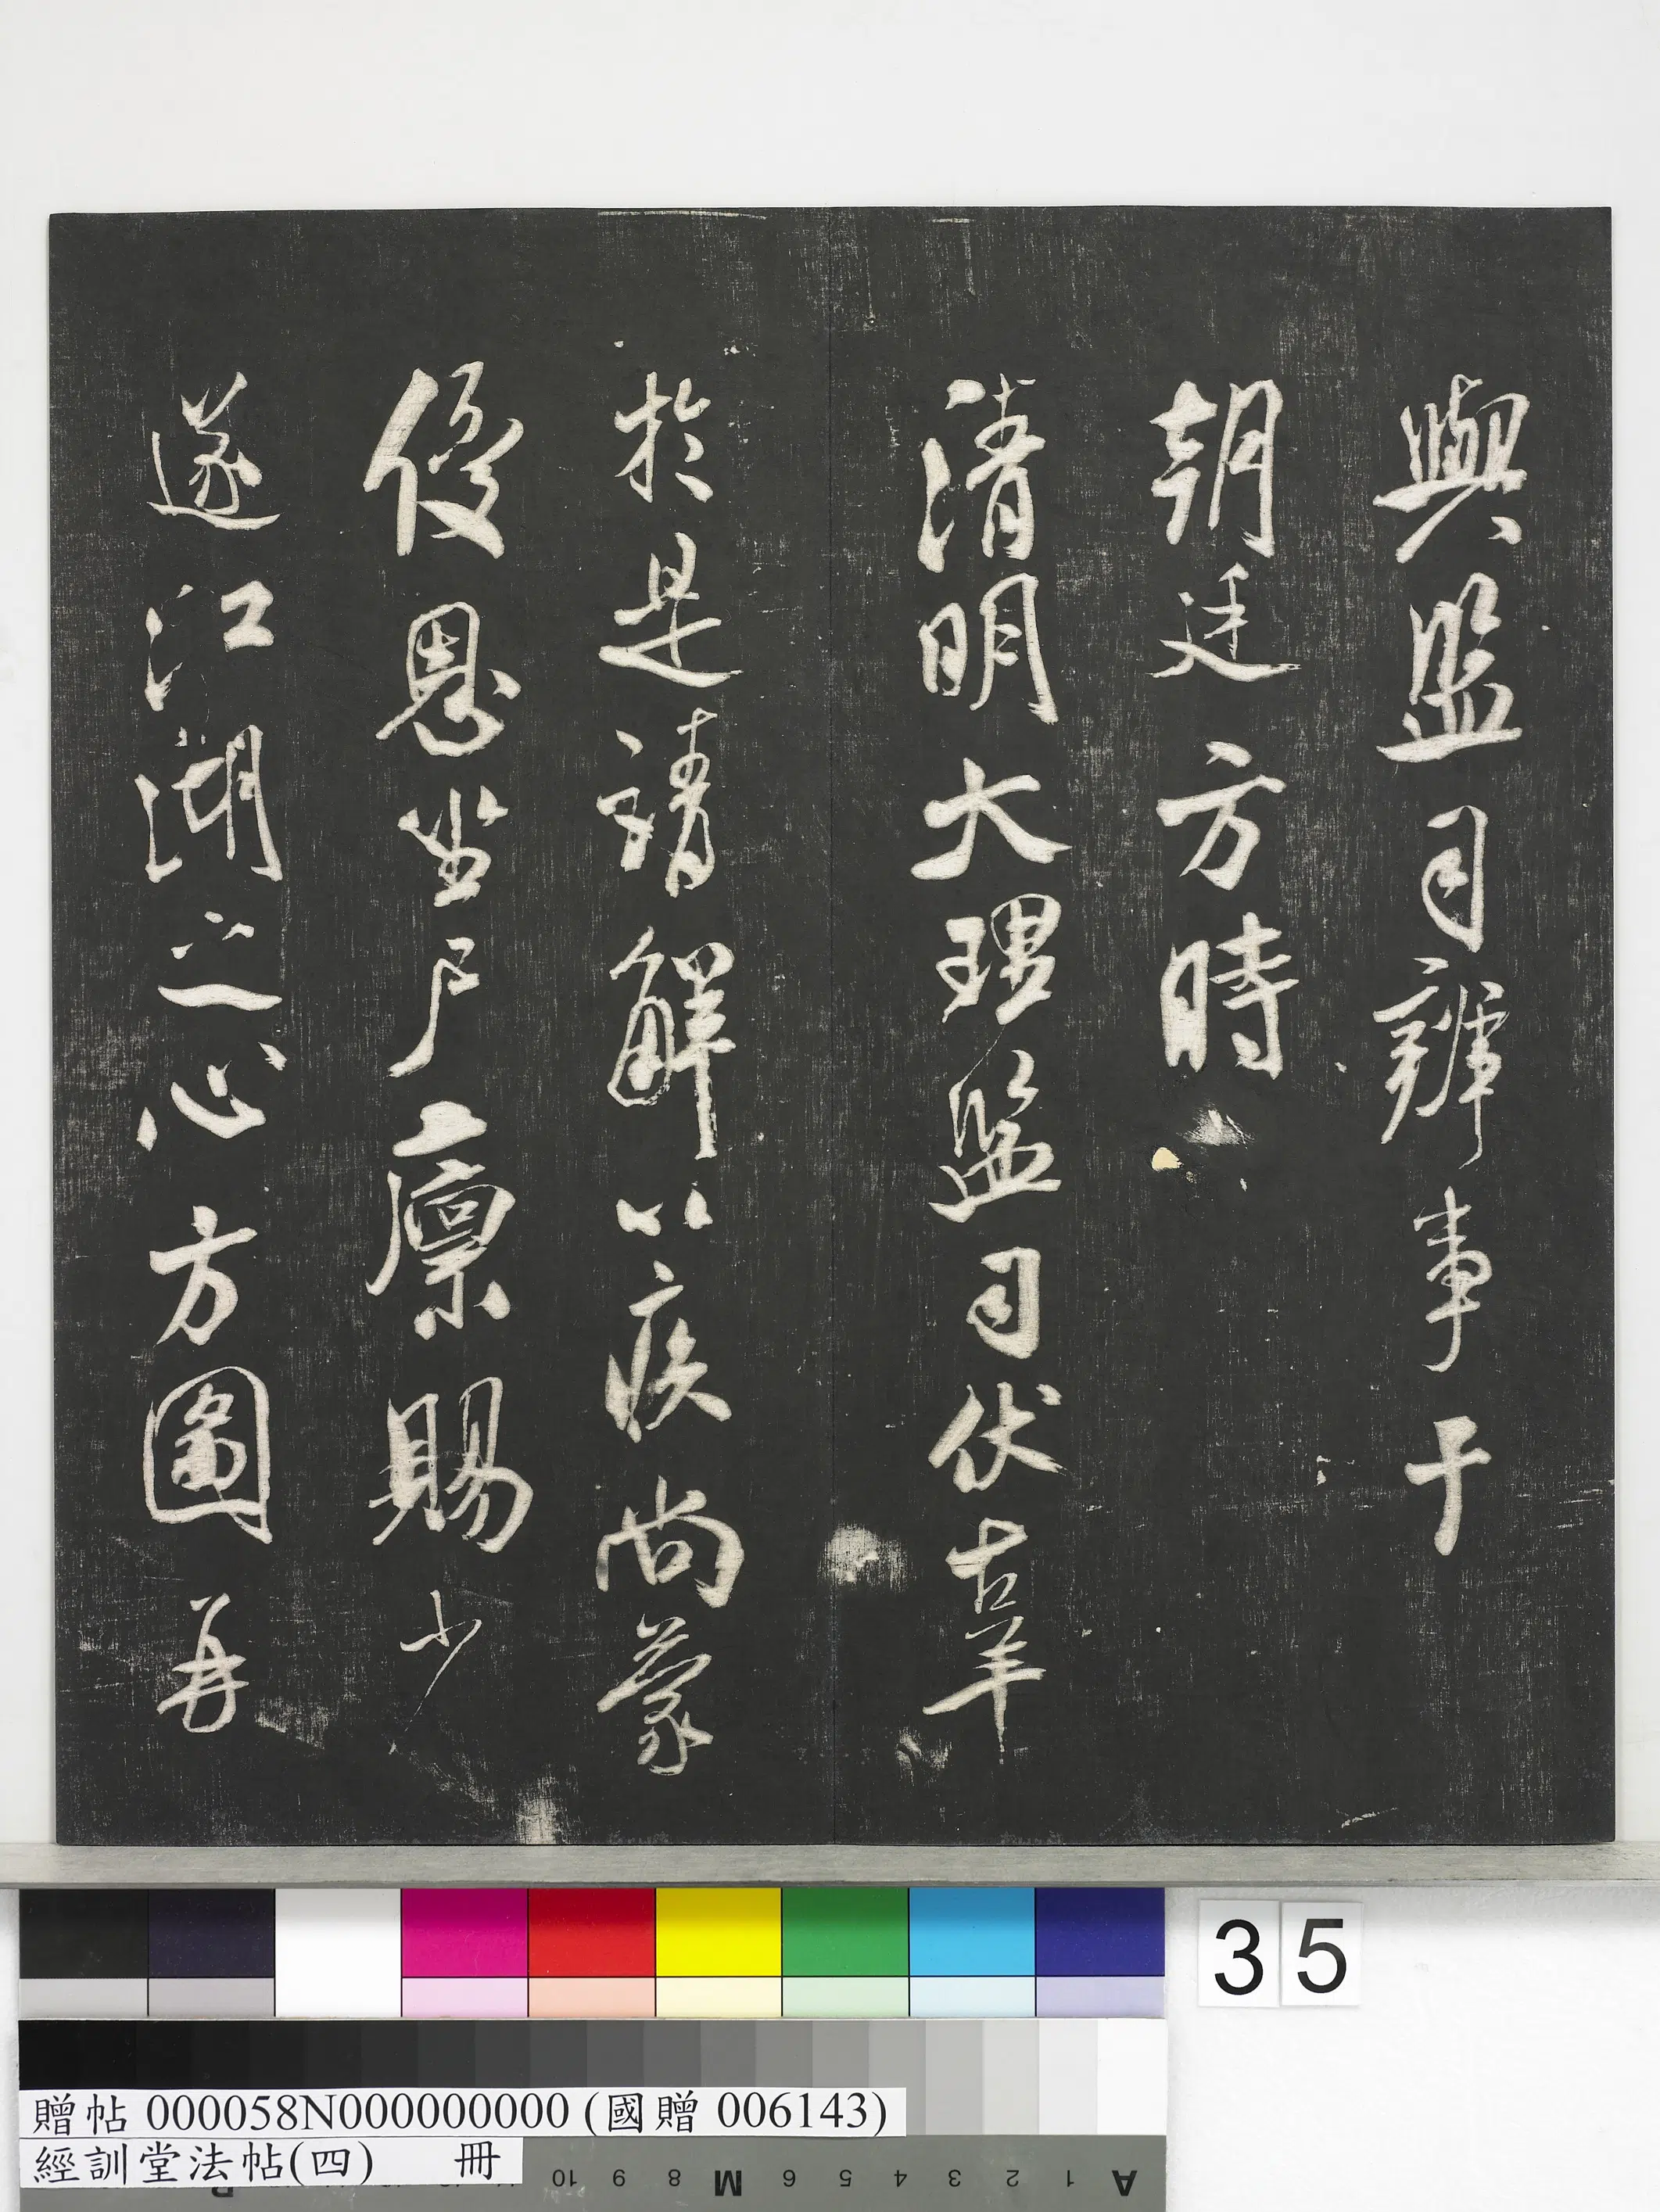 與監司辨事于
朝廷方時
清明大理監司伏辜
於是請解以疾尚蒙
優恩坐尸廩賜少
遂江湖之心方圖再
35
贈帖 000058N000000000 (國贈 006143)
經訓堂法帖(四) 冊
A 1 2 3 4 5 6 M 8 9 10